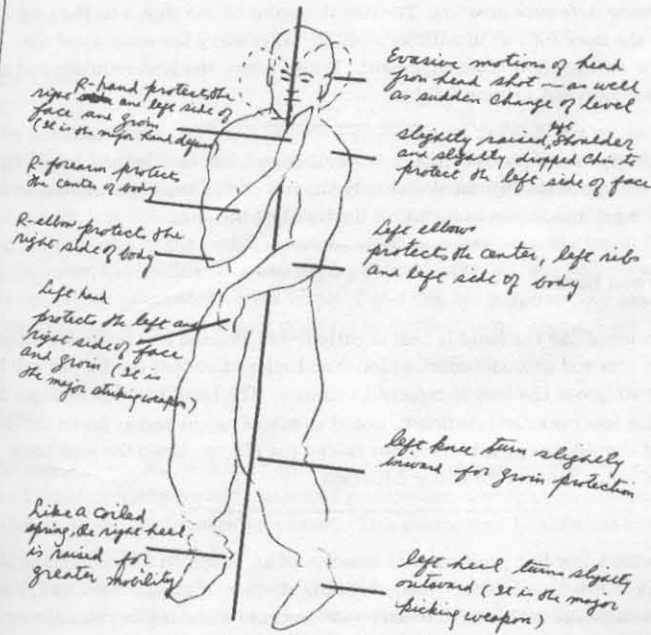 R-hand protect the
right and left side of
face and groin
(It is the major hand defense)
R-forearm protect
the center of body
R-elbow protect the
right side of body
Left hand
protects the left and
right side of face
and groin (it is
the major striking weapon)
Like a coiled
spring, the right heel
is raised for
greater mobility
Evasive motions of head
from head shift — as well
as sudden change of level
slightly raised left shoulder
and slightly dropped chin to
protect the left side of face
Left elbow
protects the center, left ribs
and left side of body
left knee turn slightly
inward for groin protection
left heel turn slightly
outward (It is the major
kicking weapon)